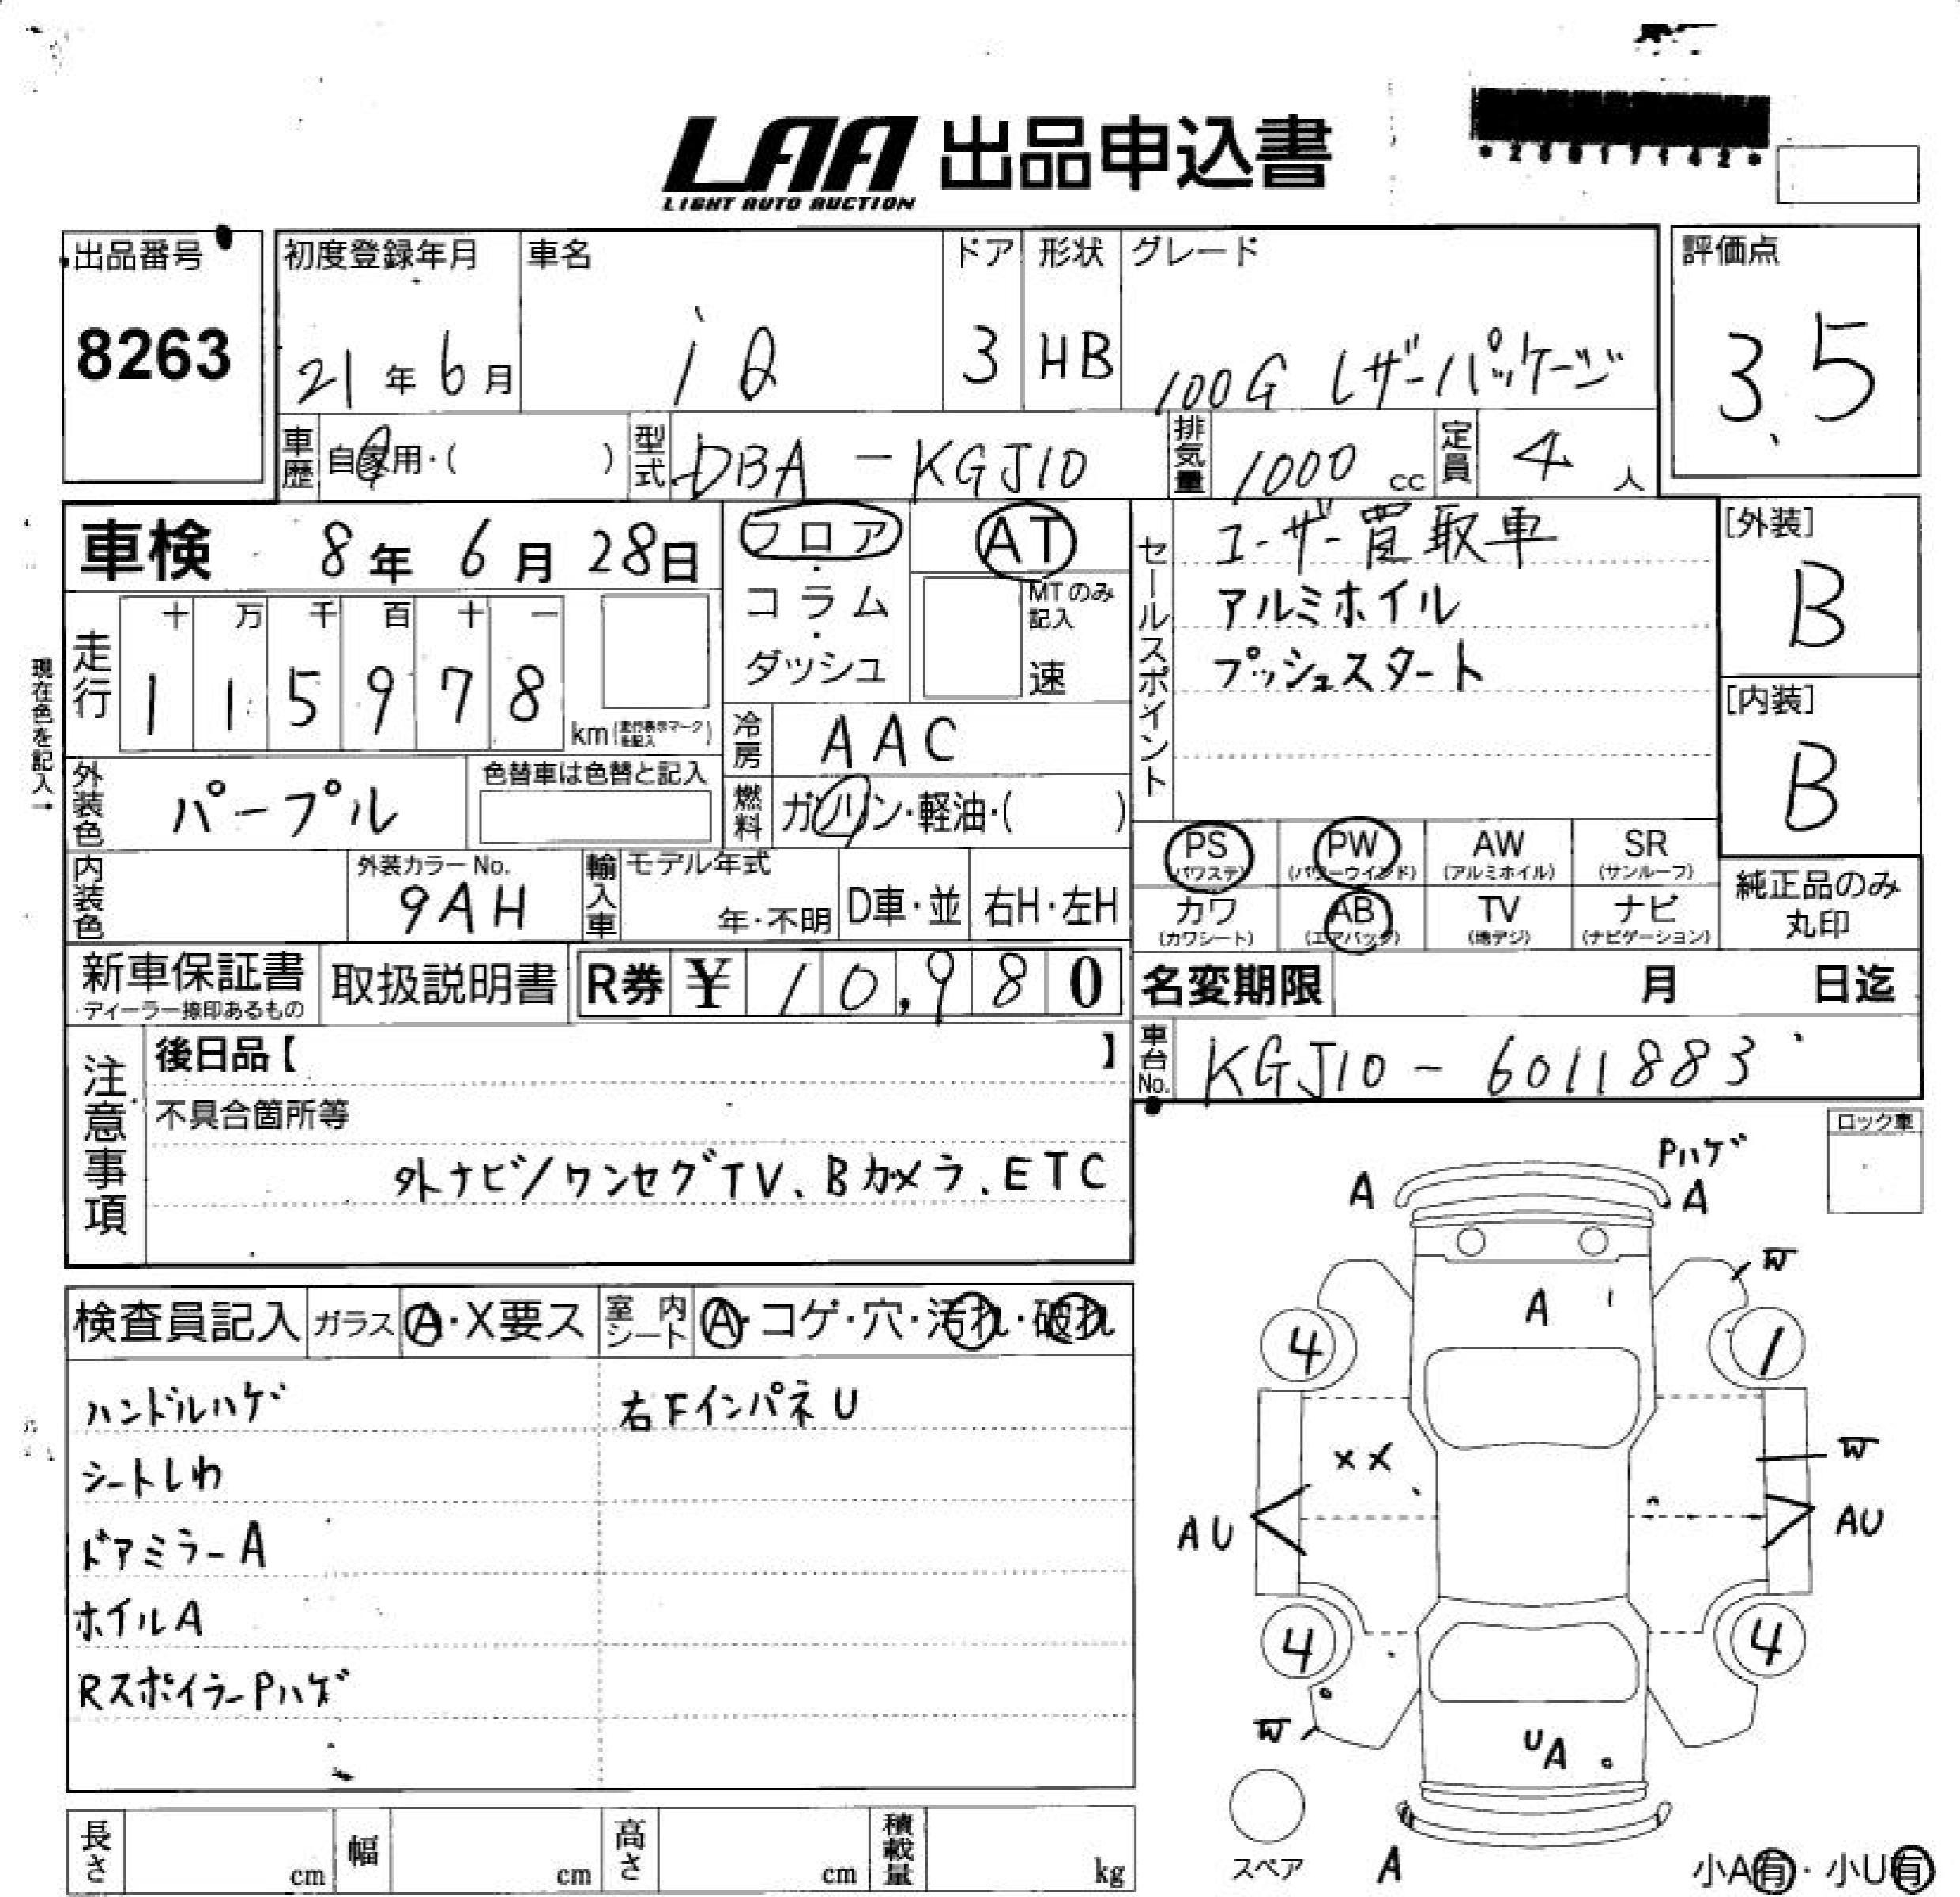 LAA 出品申込書
LIGHT AUTO AUCTION
*26017142*
出品番号
8263
初度登録年月
21年6月
車名
iQ
ドア
3
形状
HB
グレード
100G レザーパッケージ
評価点
3.5
車歴 自家用・( )
型式 DBA-KGJ10
排気量 1000 cc
定員 4人
車検 8年6月28日
フロア・コラム・ダッシュ
AT
MTのみ記入
速
セールスポイント
ユーザー買取車
アルミホイル
プッシュスタート
[外装]
B
[内装]
B
現在色を記入→
走行
十 万 千 百 十 一
1 1 5 9 7 8
km (走行表示マークを記入)
冷房 AAC
燃料 ガソリン・軽油・( )
外装色 パープル
色替車は色替と記入
内装色
外装カラーNo.
9AH
輸入車
モデル年式
年・不明
D車・並
右H・左H
PS (パワステ)
PW (パワーウインド)
AW (アルミホイル)
SR (サンルーフ)
カワ (カワシート)
AB (エアバッグ)
TV (地デジ)
ナビ (ナビゲーション)
純正品のみ丸印
新車保証書
ディーラー捺印あるもの
取扱説明書
R券 ¥ 10,980
名変期限 月 日迄
車台No. KGJ10-6011883
注意事項
後日品【 】
不具合箇所等
外ナビ/ワンセグTV、Bカメラ、ETC
ロック車
検査員記入
ガラス A・X要ス
室内シート A・コゲ・穴・汚れ・破れ
ハンドルハゲ
右下インパネU
シートしわ
ドアミラーA
ホイルA
RスポイラーPハゲ
Pハゲ
A A
W
A
4 1
XX
W
AU AU
4 4
W
UA
スペア
A
小A有・小U有
長さ cm
幅 cm
高さ cm
積載量 kg